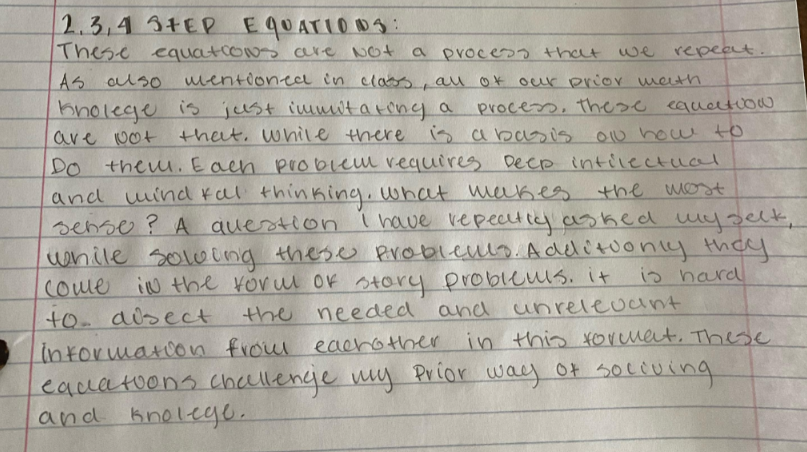 2,3,4 STEP EQUATIONS:
These equations are not a process that we repeat.
As also mentioned in class, all of our prior math
knolege is just immitating a process. These equation
are not that. While there is a basis on how to
Do them. Each problem requires Deep intilectual
and mindful thinking. What makes the most
sense? A question I have repeatly asked myself,
while solving these problems. Additionly they
come in the form of story problems. it is hard
to disect the needed and unrelevant
information from eachother in this format. These
equations challenge my prior way of solving
and knolege.